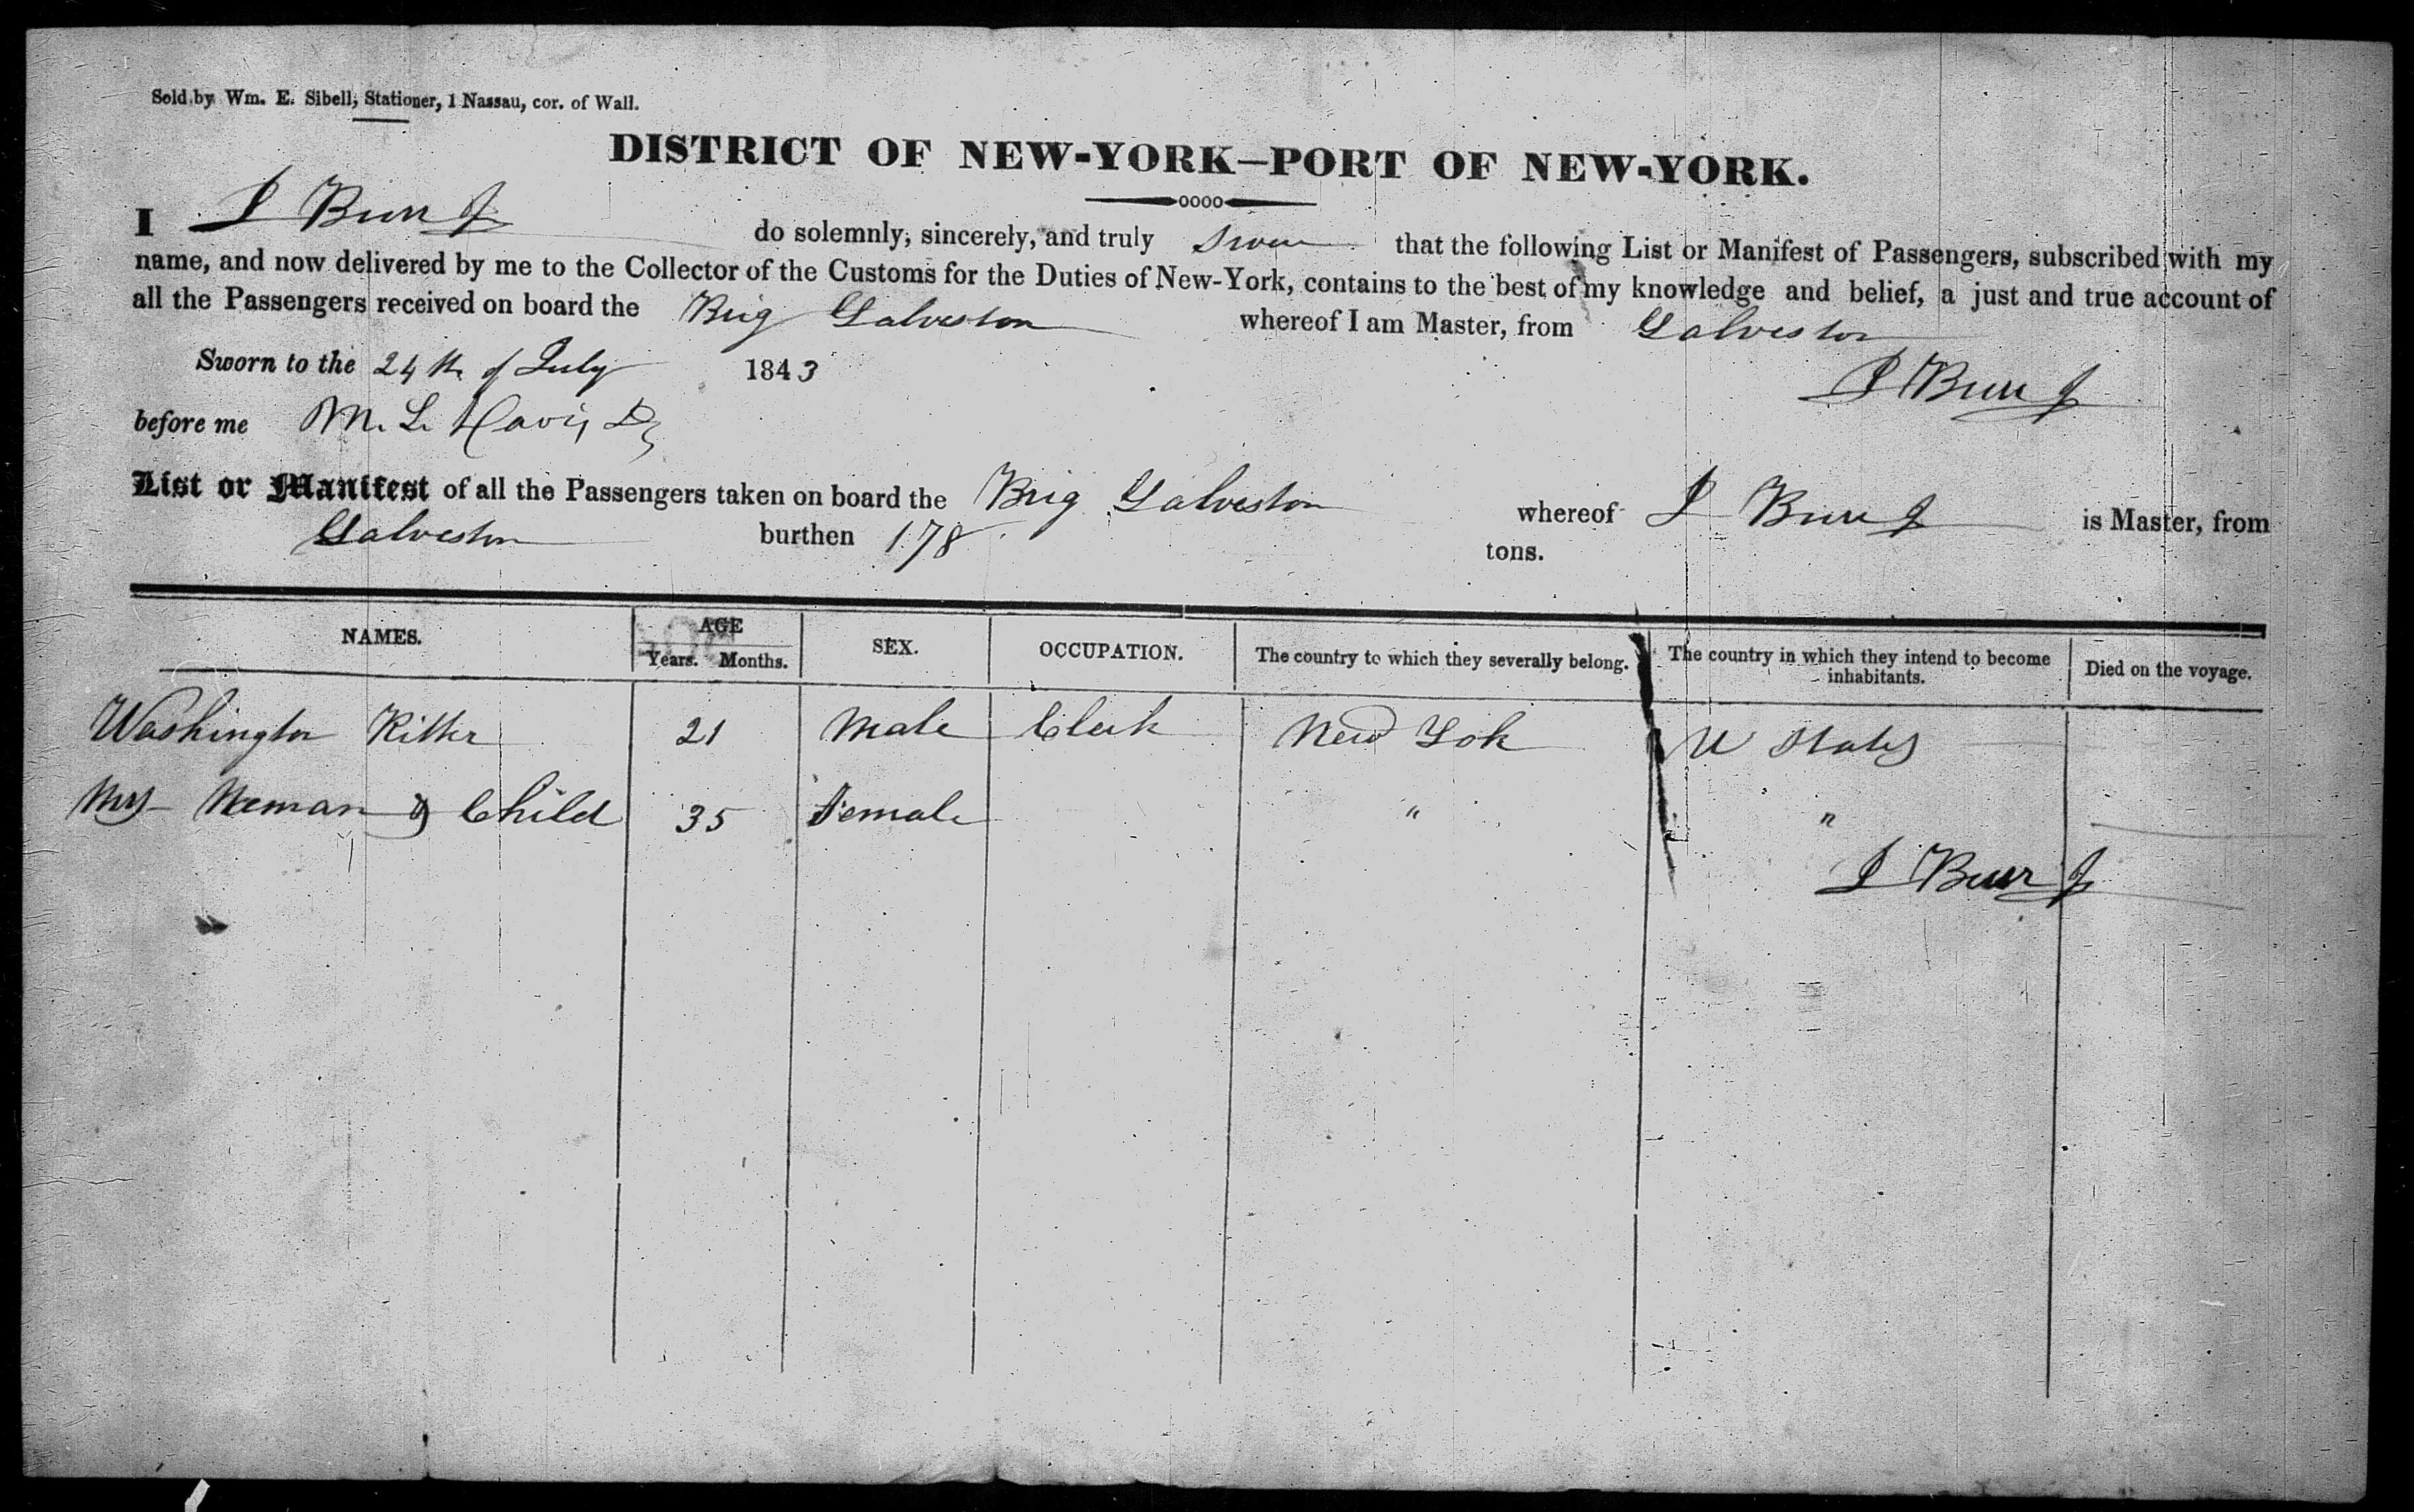 Sold by Wm. E. Sibell, Stationer, 1 Nassau, cor. of Wall.
DISTRICT OF NEW-YORK—PORT OF NEW-YORK.
I J Burr Jr do solemnly, sincerely, and truly swear that the following List or Manifest of Passengers, subscribed with my
name, and now delivered by me to the Collector of the Customs for the Duties of New-York, contains to the best of my knowledge and belief, a just and true account of
all the Passengers received on board the Brig Galveston whereof I am Master, from Galveston
Sworn to the 24th of July 1843
J Burr Jr
before me M. L. Davis
List or Manifest of all the Passengers taken on board the Brig Galveston whereof J Burr Jr is Master, from
Galveston burthen 178 tons.
NAMES. AGE Years. Months. SEX. OCCUPATION. The country to which they severally belong. The country in which they intend to become inhabitants. Died on the voyage.
Washington Ritter 21 Male Clerk New York U States
Mrs Neman & Child 35 Female " "
J Burr Jr